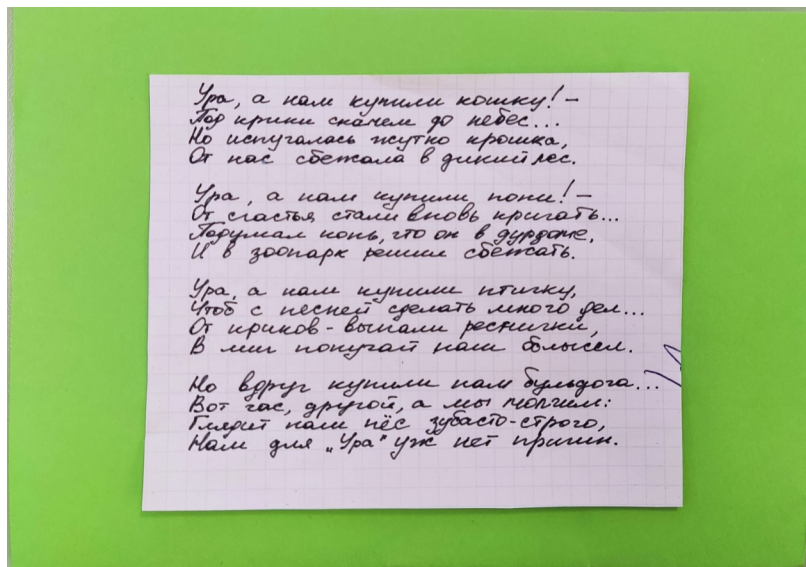 Ура, а нам купили кошку! –
Под крики скачем до небес...
Но испугалась жутко крошка,
От нас сбежала в дикий лес.
Ура, а нам купили пони! –
От счастья стали вновь кричать...
Подумал конь, что он в дурдоме,
И в зоопарк решил сбежать.
Ура, а нам купили птичку,
Чтоб с песней сделать много дел...
От криков - выпали реснички,
В миг попугай наш облысел.
Но вдруг купили нам бульдога...
Вот час, другой, а мы молчим:
Глядит наш пёс зубасто-строго,
Нам для „Ура" уж нет причин.